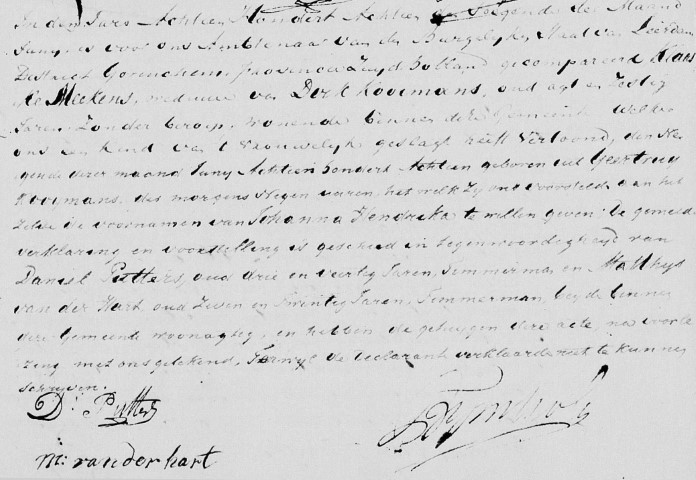 In den Jare Achtien Hondert Achtien den Negende der Maand
Juny, is voor ons Ambtenaar van den Burgelyken Staat van Leerdam
District Gorinchem, provincie Zuyd holland gecompareerd Klaas
je Meekens, weduwe van Dirk Kooimans, oud agt en Zestig
Jaren, Zonder beroep, wonende binnen deze Gemeente Welke
ons een Kind van 't Vrouwelyk geslagt heeft Vertoond, den Ne
gende dezer maand Juny Achtien hondert Achtien geboren uit Geertruy
Kooymans, des morgens Negen uuren, het welk Zy ons voorsteld aan het
Zelve de voornamen van Johanna Hendrika te willen geven. De gemelde
verklaring en voorstelling is geschied in tegenwoordigheyd van
Daniel Putters, oud drie en veertig Jaren, Timmerman en Matthys
van der Hart oud Zeven en Twintig Jaren, Timmerman, beyde binnen
deze Gemeente woonagteg, en hebben de getuigen deze acte, na voorle
zing met ons getekend, Terwyl de declarant verklaarde niet te kunnen
schryven.
D: Putters
m: van der hart